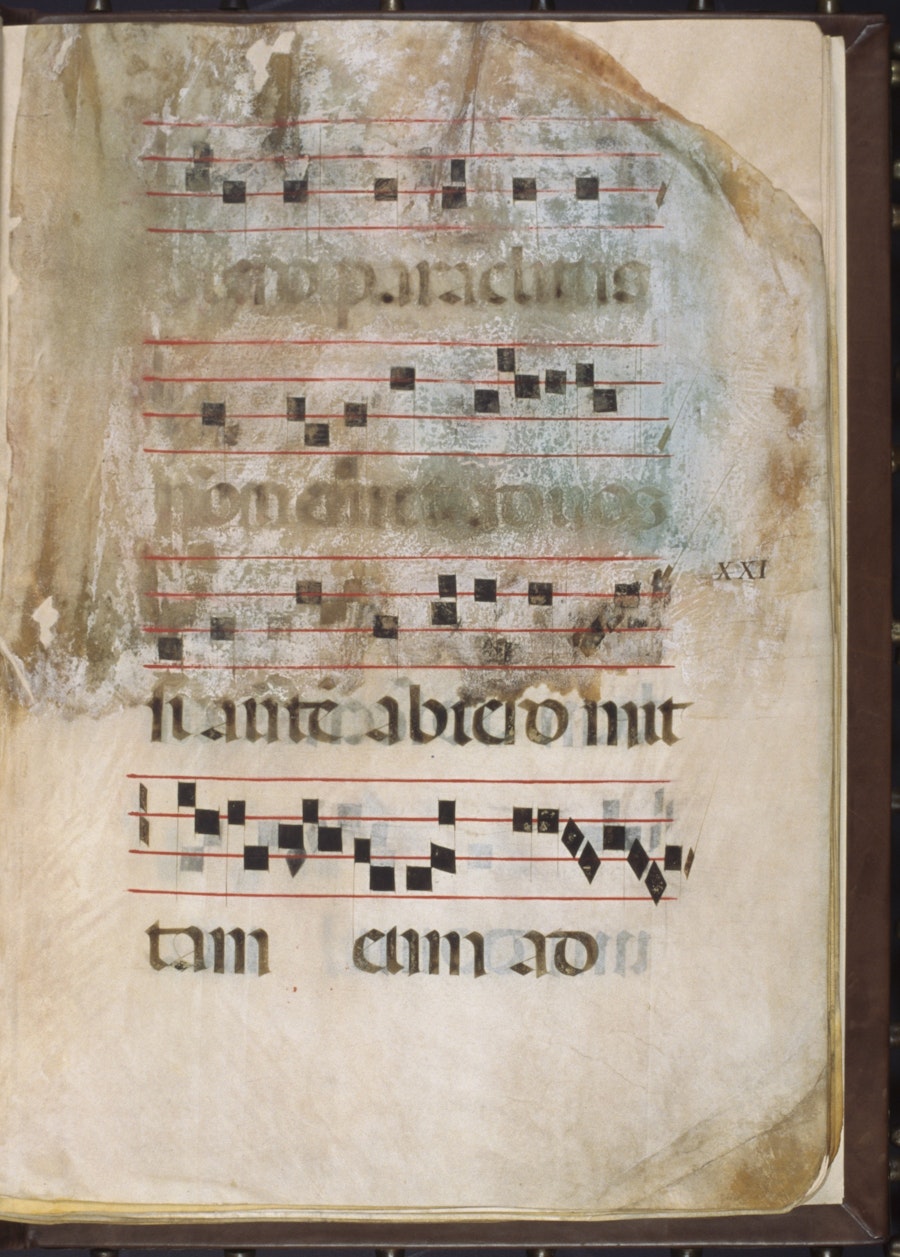 paraclitus
non ueniet ad uos
XXI
si autē abiero mit
tam eum ad